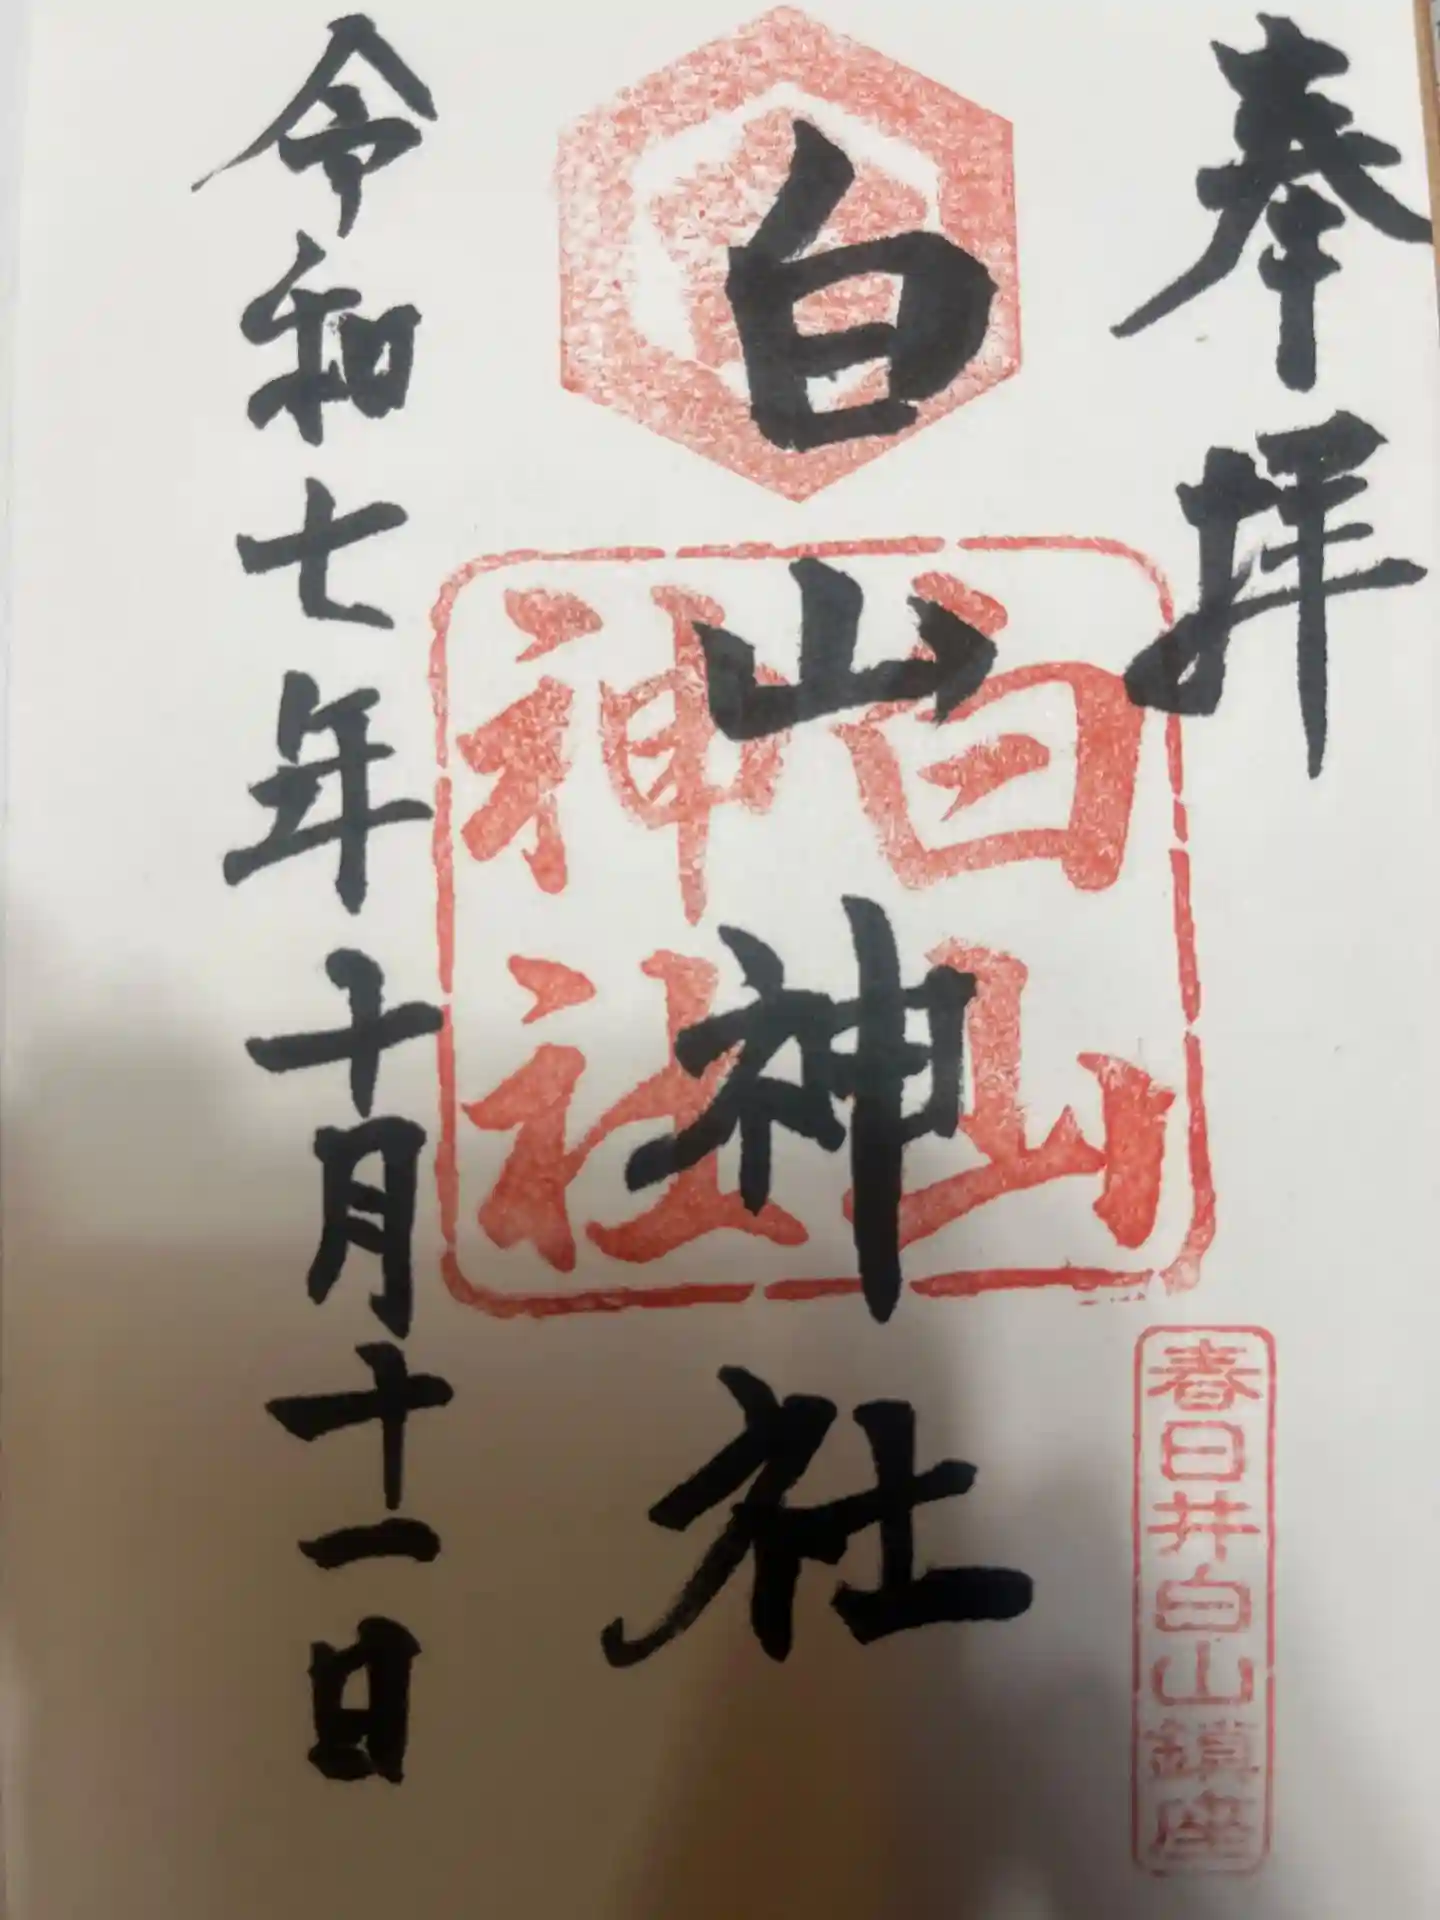 奉拝
春日井白山鎮座
白山神社
白山
神社
令和七年十月十一日